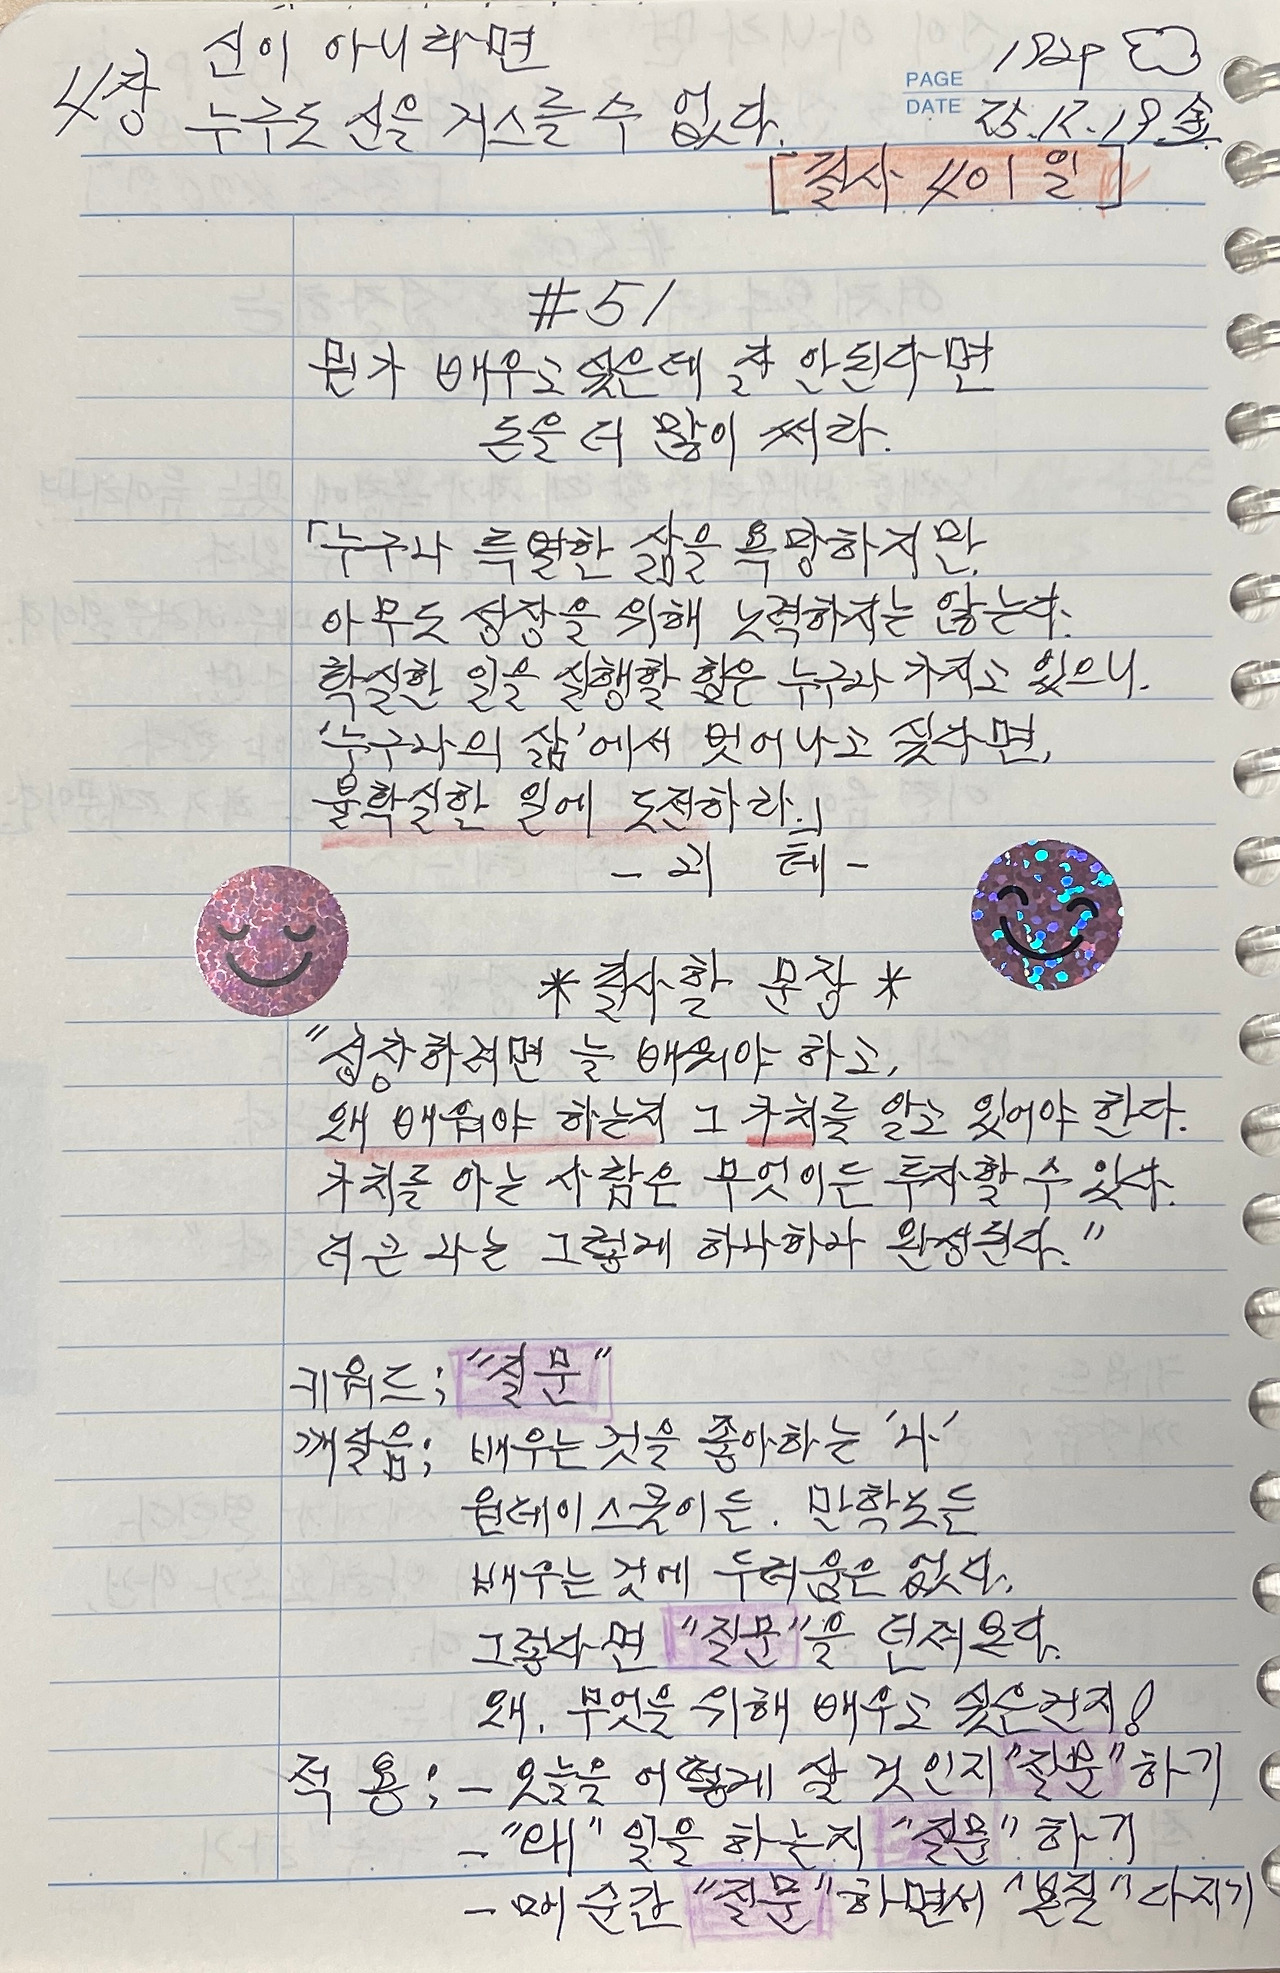 신이 아니라면
4장 누구도 신을 거스를 수 없다.
PAGE 182p
DATE 25.12.19.金
[필사 401일]
#51
뭔가 배우고 싶은데 잘 안된다면
돈을 더 많이 써라.
「누구나 특별한 삶을 욕망하지만,
아무도 성장을 위해 노력하지는 않는다.
확실한 일을 실행할 힘은 누구나 가지고 있으니.
'누구나의 삶'에서 벗어나고 싶다면,
불확실한 일에 도전하라.」
- 괴 테 -
* 필사할 문장 *
"성장하려면 늘 배워야 하고,
왜 배워야 하는지 그 가치를 알고 있어야 한다.
가치를 아는 사람은 무엇이든 투자할 수 있다.
더 큰 나는 그렇게 하나하나 완성된다."
키워드; "질문"
깨달음; 배우는 것을 좋아하는 '나'
원데이스쿨이든. 만학도든
배우는 것에 두려움은 없다.
그렇다면 "질문"을 던져본다.
왜. 무엇을 위해 배우고 싶은건지!
적 용; - 오늘을 어떻게 살 것인지 "질문"하기
- "왜" 일을 하는지 "질문" 하기
- 매 순간 "질문"하면서 "본질" 다지기